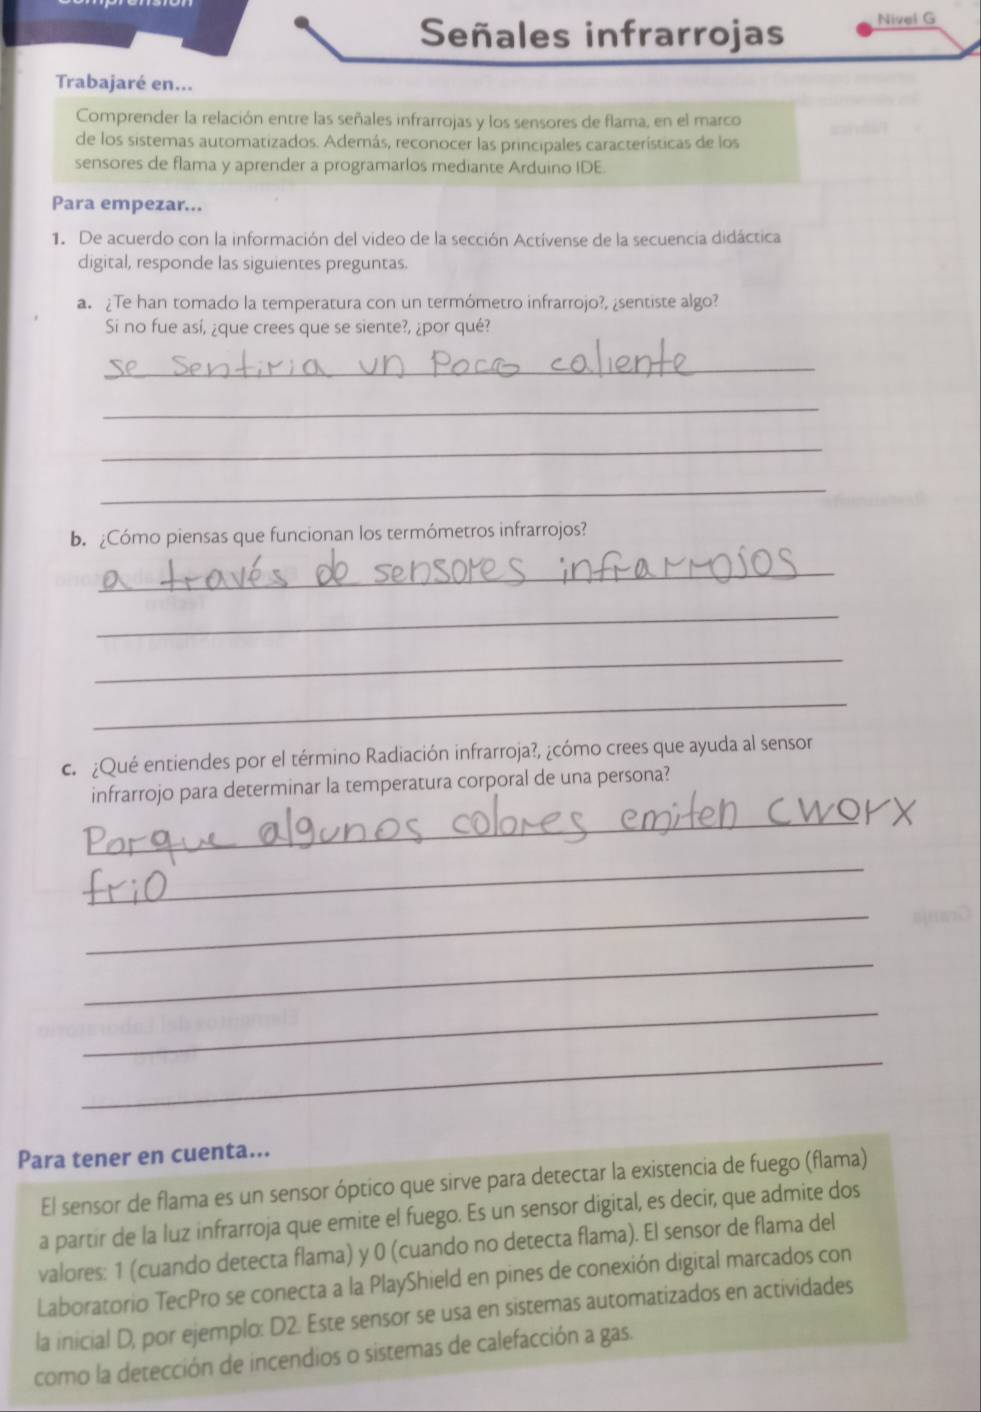 Señales infrarrojas
Nivel G
Trabajaré en...
Comprender la relación entre las señales infrarrojas y los sensores de flama, en el marco
de los sistemas automatizados. Además, reconocer las principales características de los
sensores de flama y aprender a programarlos mediante Arduino IDE.
Para empezar...
1. De acuerdo con la información del video de la sección Actívense de la secuencia didáctica
digital, responde las siguientes preguntas.
a. ¿Te han tomado la temperatura con un termómetro infrarrojo?, ¿sentiste algo?
Si no fue así, ¿que crees que se siente?, ¿por qué?
se sentiria un Poco caliente
b. ¿Cómo piensas que funcionan los termómetros infrarrojos?
a través de sensores infrarrojos
c. ¿Qué entiendes por el término Radiación infrarroja?, ¿cómo crees que ayuda al sensor
infrarrojo para determinar la temperatura corporal de una persona?
Porque algunos colores emiten cworx
frio
Para tener en cuenta...
El sensor de flama es un sensor óptico que sirve para detectar la existencia de fuego (flama)
a partir de la luz infrarroja que emite el fuego. Es un sensor digital, es decir, que admite dos
valores: 1 (cuando detecta flama) y 0 (cuando no detecta flama). El sensor de flama del
Laboratorio TecPro se conecta a la PlayShield en pines de conexión digital marcados con
la inicial D, por ejemplo: D2. Este sensor se usa en sistemas automatizados en actividades
como la detección de incendios o sistemas de calefacción a gas.